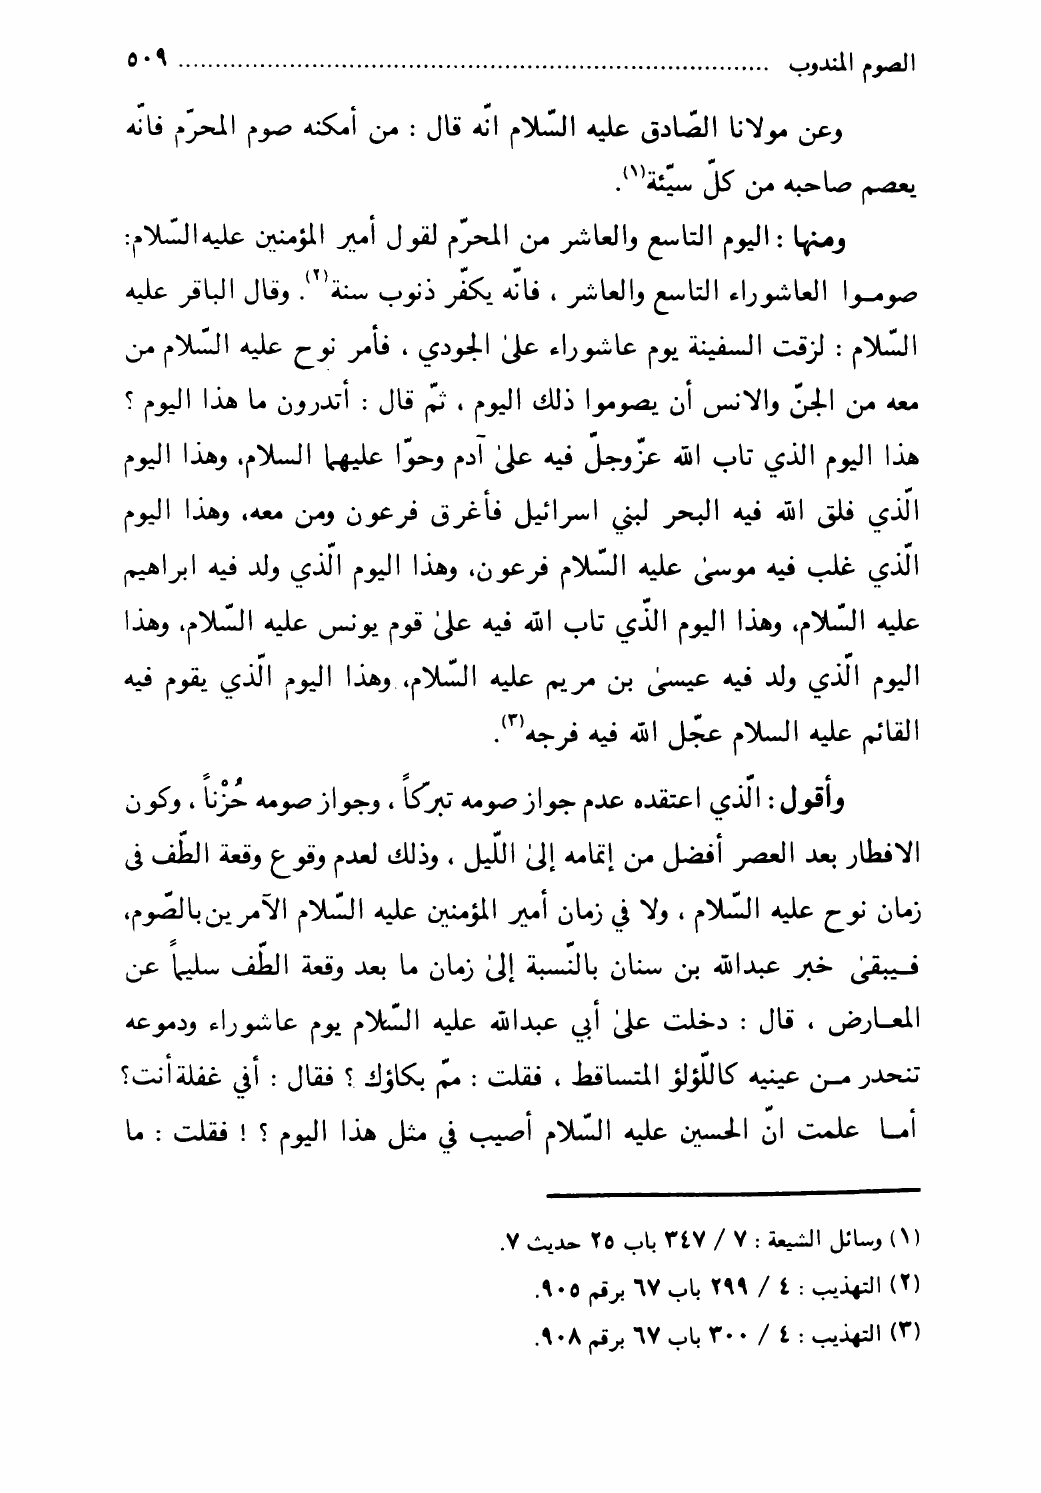 الصوم المندوب ........................................................................ ٥٠٩
وعن مولانا الصّادق عليه السّلام انّه قال : من أمكنه صوم المحرّم فانّه
يعصم صاحبه من كلّ سيّئة(١).
ومنها : اليوم التاسع والعاشر من المحرّم لقول أمير المؤمنين عليه السّلام:
صومـوا العاشوراء التاسع والعاشر ، فانّه يكفّر ذنوب سنة(٢). وقال الباقر عليه
السّلام : لزقت السفينة يوم عاشوراء علىٰ الجودي ، فأمر نوح عليه السّلام من
معه من الجنّ والانس أن يصوموا ذلك اليوم ، ثمّ قال : أتدرون ما هذا اليوم ؟
هذا اليوم الذي تاب الله عزّوجلّ فيه علىٰ آدم وحوّا عليهما السلام، وهذا اليوم
الّذي فلق الله فيه البحر لبني اسرائيل فأغرق فرعون ومن معه، وهذا اليوم
الّذي غلب فيه موسىٰ عليه السّلام فرعون، وهذا اليوم الّذي ولد فيه ابراهيم
عليه السّلام، وهذا اليوم الذّي تاب الله فيه علىٰ قوم يونس عليه السّلام، وهذا
اليوم الّذي ولد فيه عيسىٰ بن مريم عليه السّلام، وهذا اليوم الّذي يقوم فيه
القائم عليه السلام عجّل الله فيه فرجه(٣).
وأقول : الّذي اعتقده عدم جواز صومه تبرّكاً ، وجواز صومه حُزْناً ، وكون
الافطار بعد العصر أفضل من إتمامه إلىٰ اللّيل ، وذلك لعدم وقوع وقعة الطّف في
زمان نوح عليه السّلام ، ولا في زمان أمير المؤمنين عليه السّلام الآمرين بالصّوم،
فـيبقىٰ خبر عبدالله بن سنان بالنّسبة إلىٰ زمان ما بعد وقعة الطّف سليماً عن
المعـارض ، قال : دخلت علىٰ أبي عبدالله عليه السّلام يوم عاشوراء ودموعه
تنحدر مـن عينيه كاللّؤلؤ المتساقط ، فقلت : ممّ بكاؤك ؟ فقال : أفي غفلة أنت؟
أمـا علمت انّ الحسين عليه السّلام أصيب في مثل هذا اليوم ؟ ! فقلت : ما
(١) وسائل الشيعة : ٧ / ٣٤٧ باب ٢٥ حديث ٧.
(٢) التهذيب : ٤ / ٢٩٩ باب ٦٧ برقم ٩٠٥.
(٣) التهذيب : ٤ / ٣٠٠ باب ٦٧ برقم ٩٠٨.